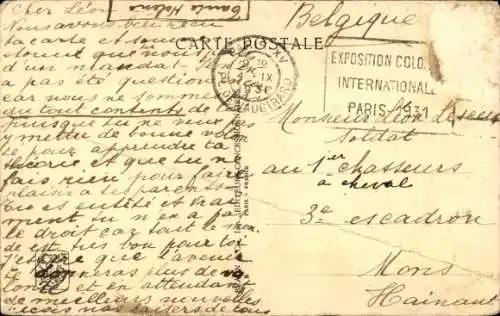 Cher Léon
Nous avons bien reçu
ta carte et
d'un mandat
a pas été question
car nous ne sommes
du tout contents de
puisque tu ne veux pas
y mettre de bonne volon
té pour apprendre ta
théorie et que tu ne
fais rien pour faire
plaisir à tes parents
tu es entêté et vrai
ment tu n'en a pas
le droit car tout le mon
de est très bon pour toi
que l'avenir
donneras plus de vo
lonté et en attendant
de meilleures nouvelles
reçois nos baisers de tous
Tante Hélène
CARTE POSTALE
PARIS XV
R. DE VAUGIRARD
EXPOSITION COLO.
INTERNATIONALE
PARIS 1931
Belgique
Monsieur Léon
Soldat
au 1er chasseurs
à cheval
3e escadron
Mons
Hainaut